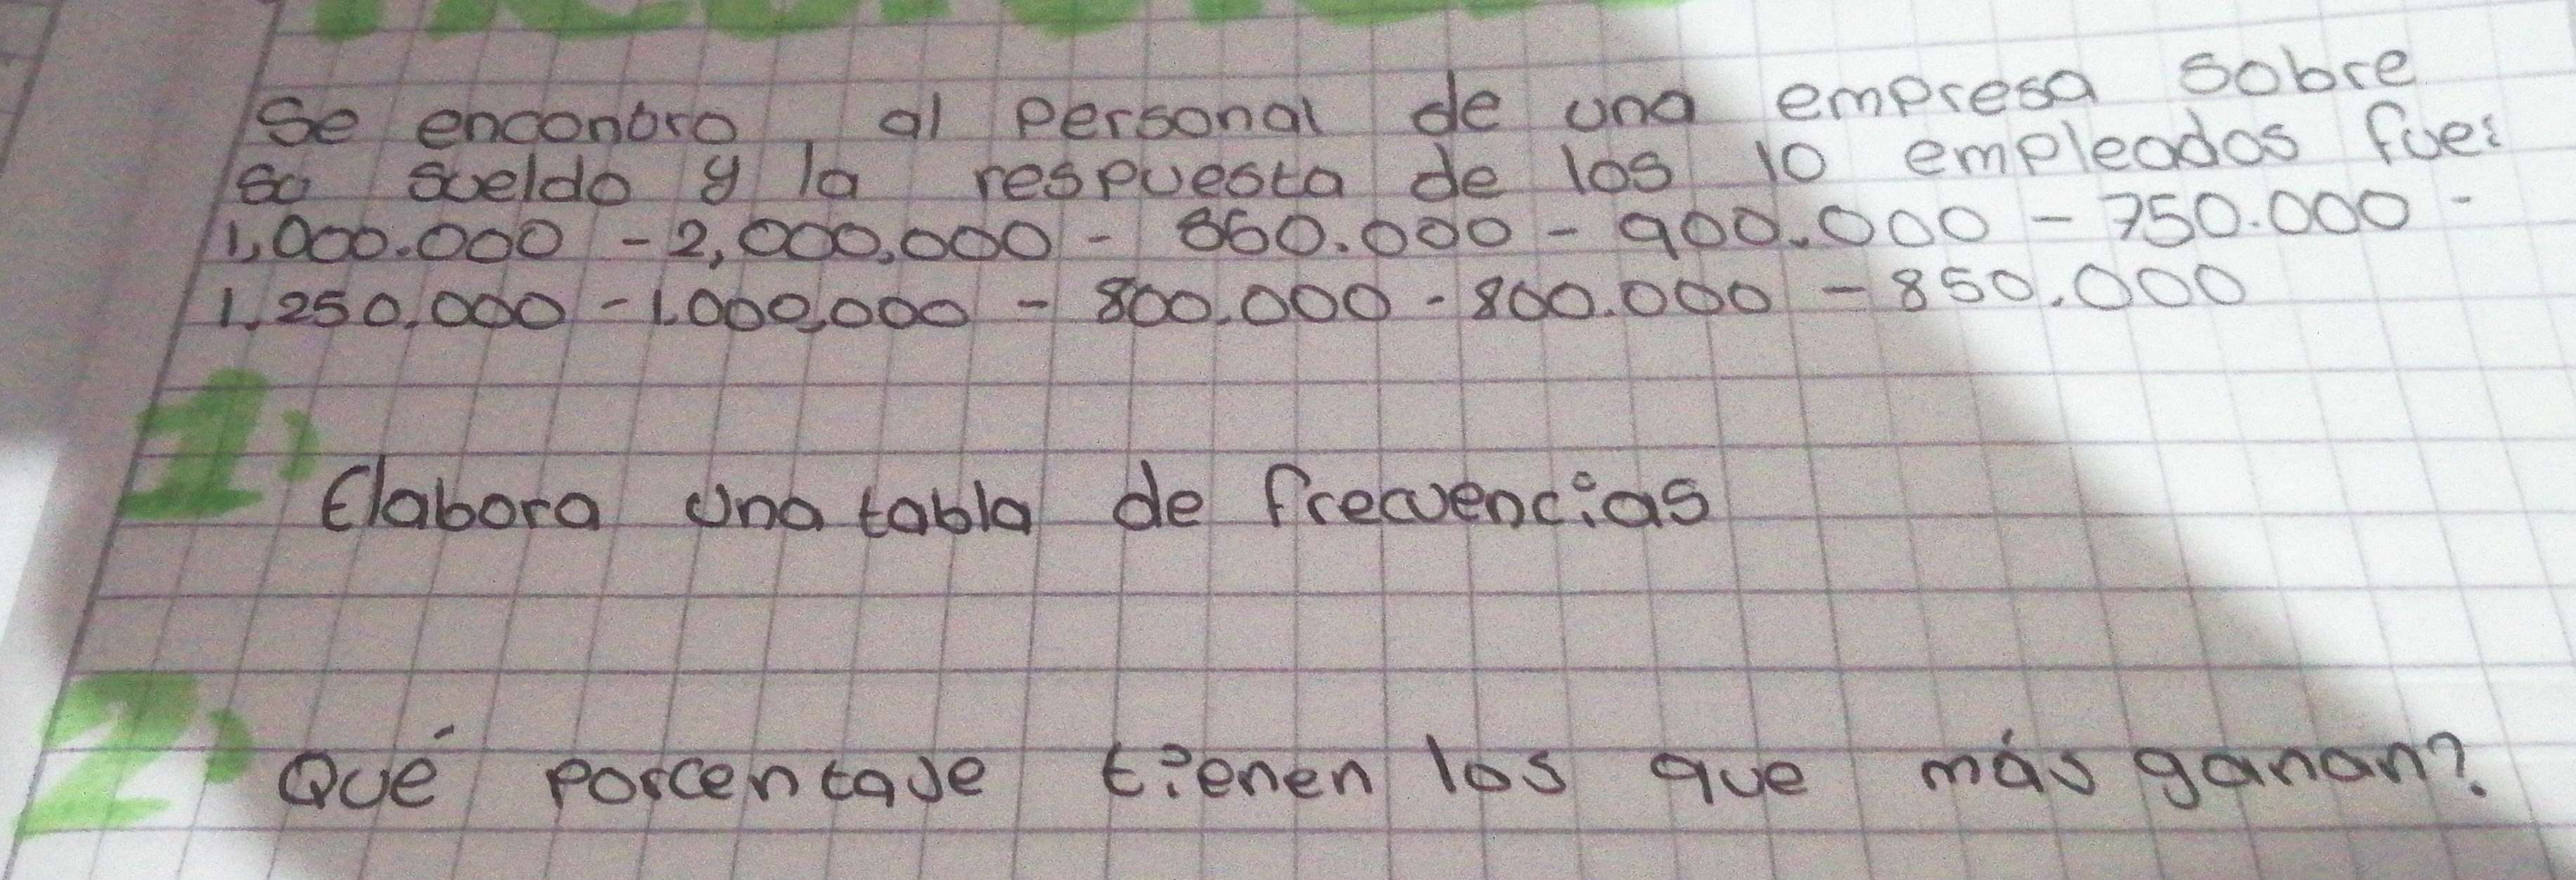 Se encontro, al personal de una empresa sobre
so sueldo y la respuesta de los 10 empleados fue:
1,000.000 - 2,000,000 - 860.000 - 900.000 - 750.000 -
1.250.000 - 1.000,000 - 800.000 - 800.000 - 850.000
1)
Elabora una tabla de frecuencias
2)
Qué porcentaje tienen los que más ganan?